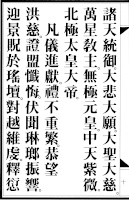 諸天統御大悲大願大聖大慈
萬星教主無極元皇中天紫微
北極太皇大帝
凡儀進獻禮不重繁恭望
洪慈證盟懺悔伏聞琳瑯振響
迎景貺於瑤壇對越維虔釋愆